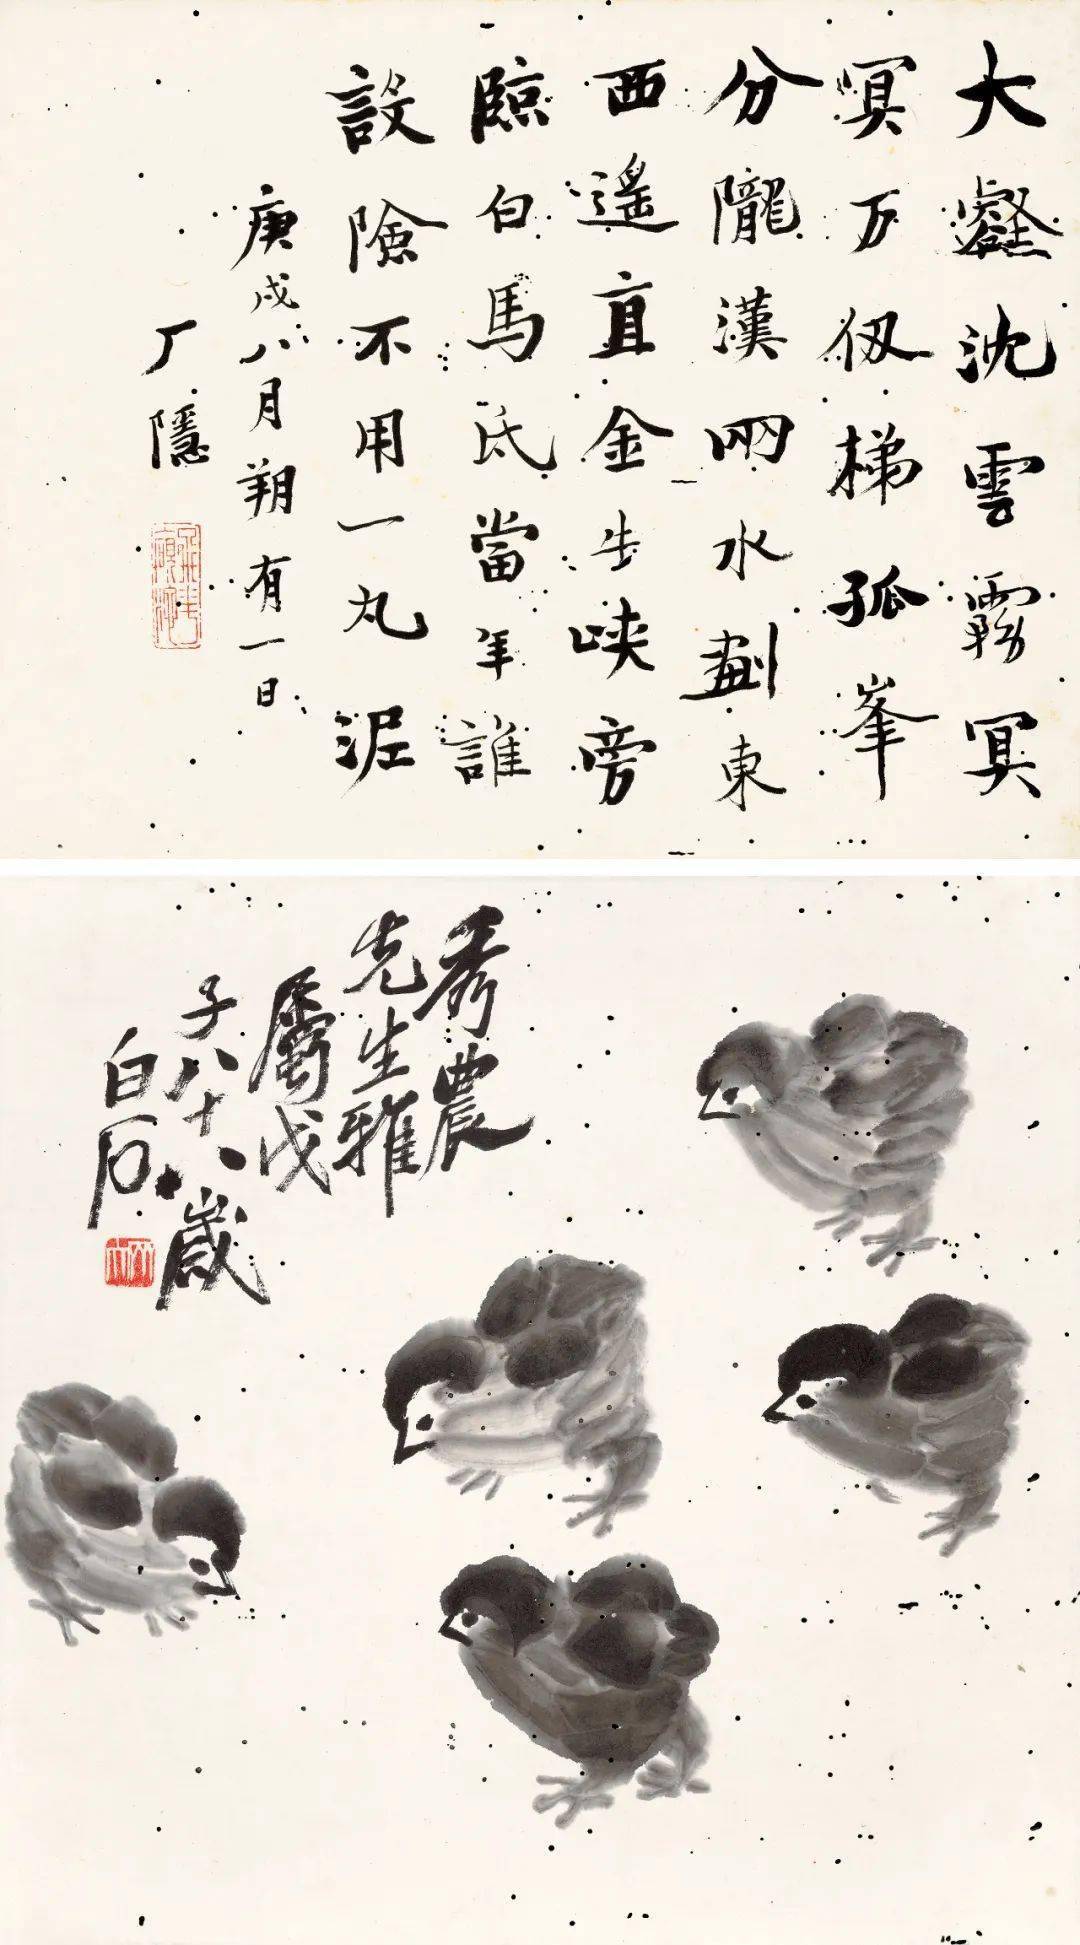 大壑沈雲霧冥
冥万仞梯孤峯
分隴漢兩水劃東
西遙直金牛峽旁
臨白馬氐當年誰
設險不用一丸泥
庚戌八月朔有一日
厂隱
秀農
先生雅
屬戊
子八十八歲
白石